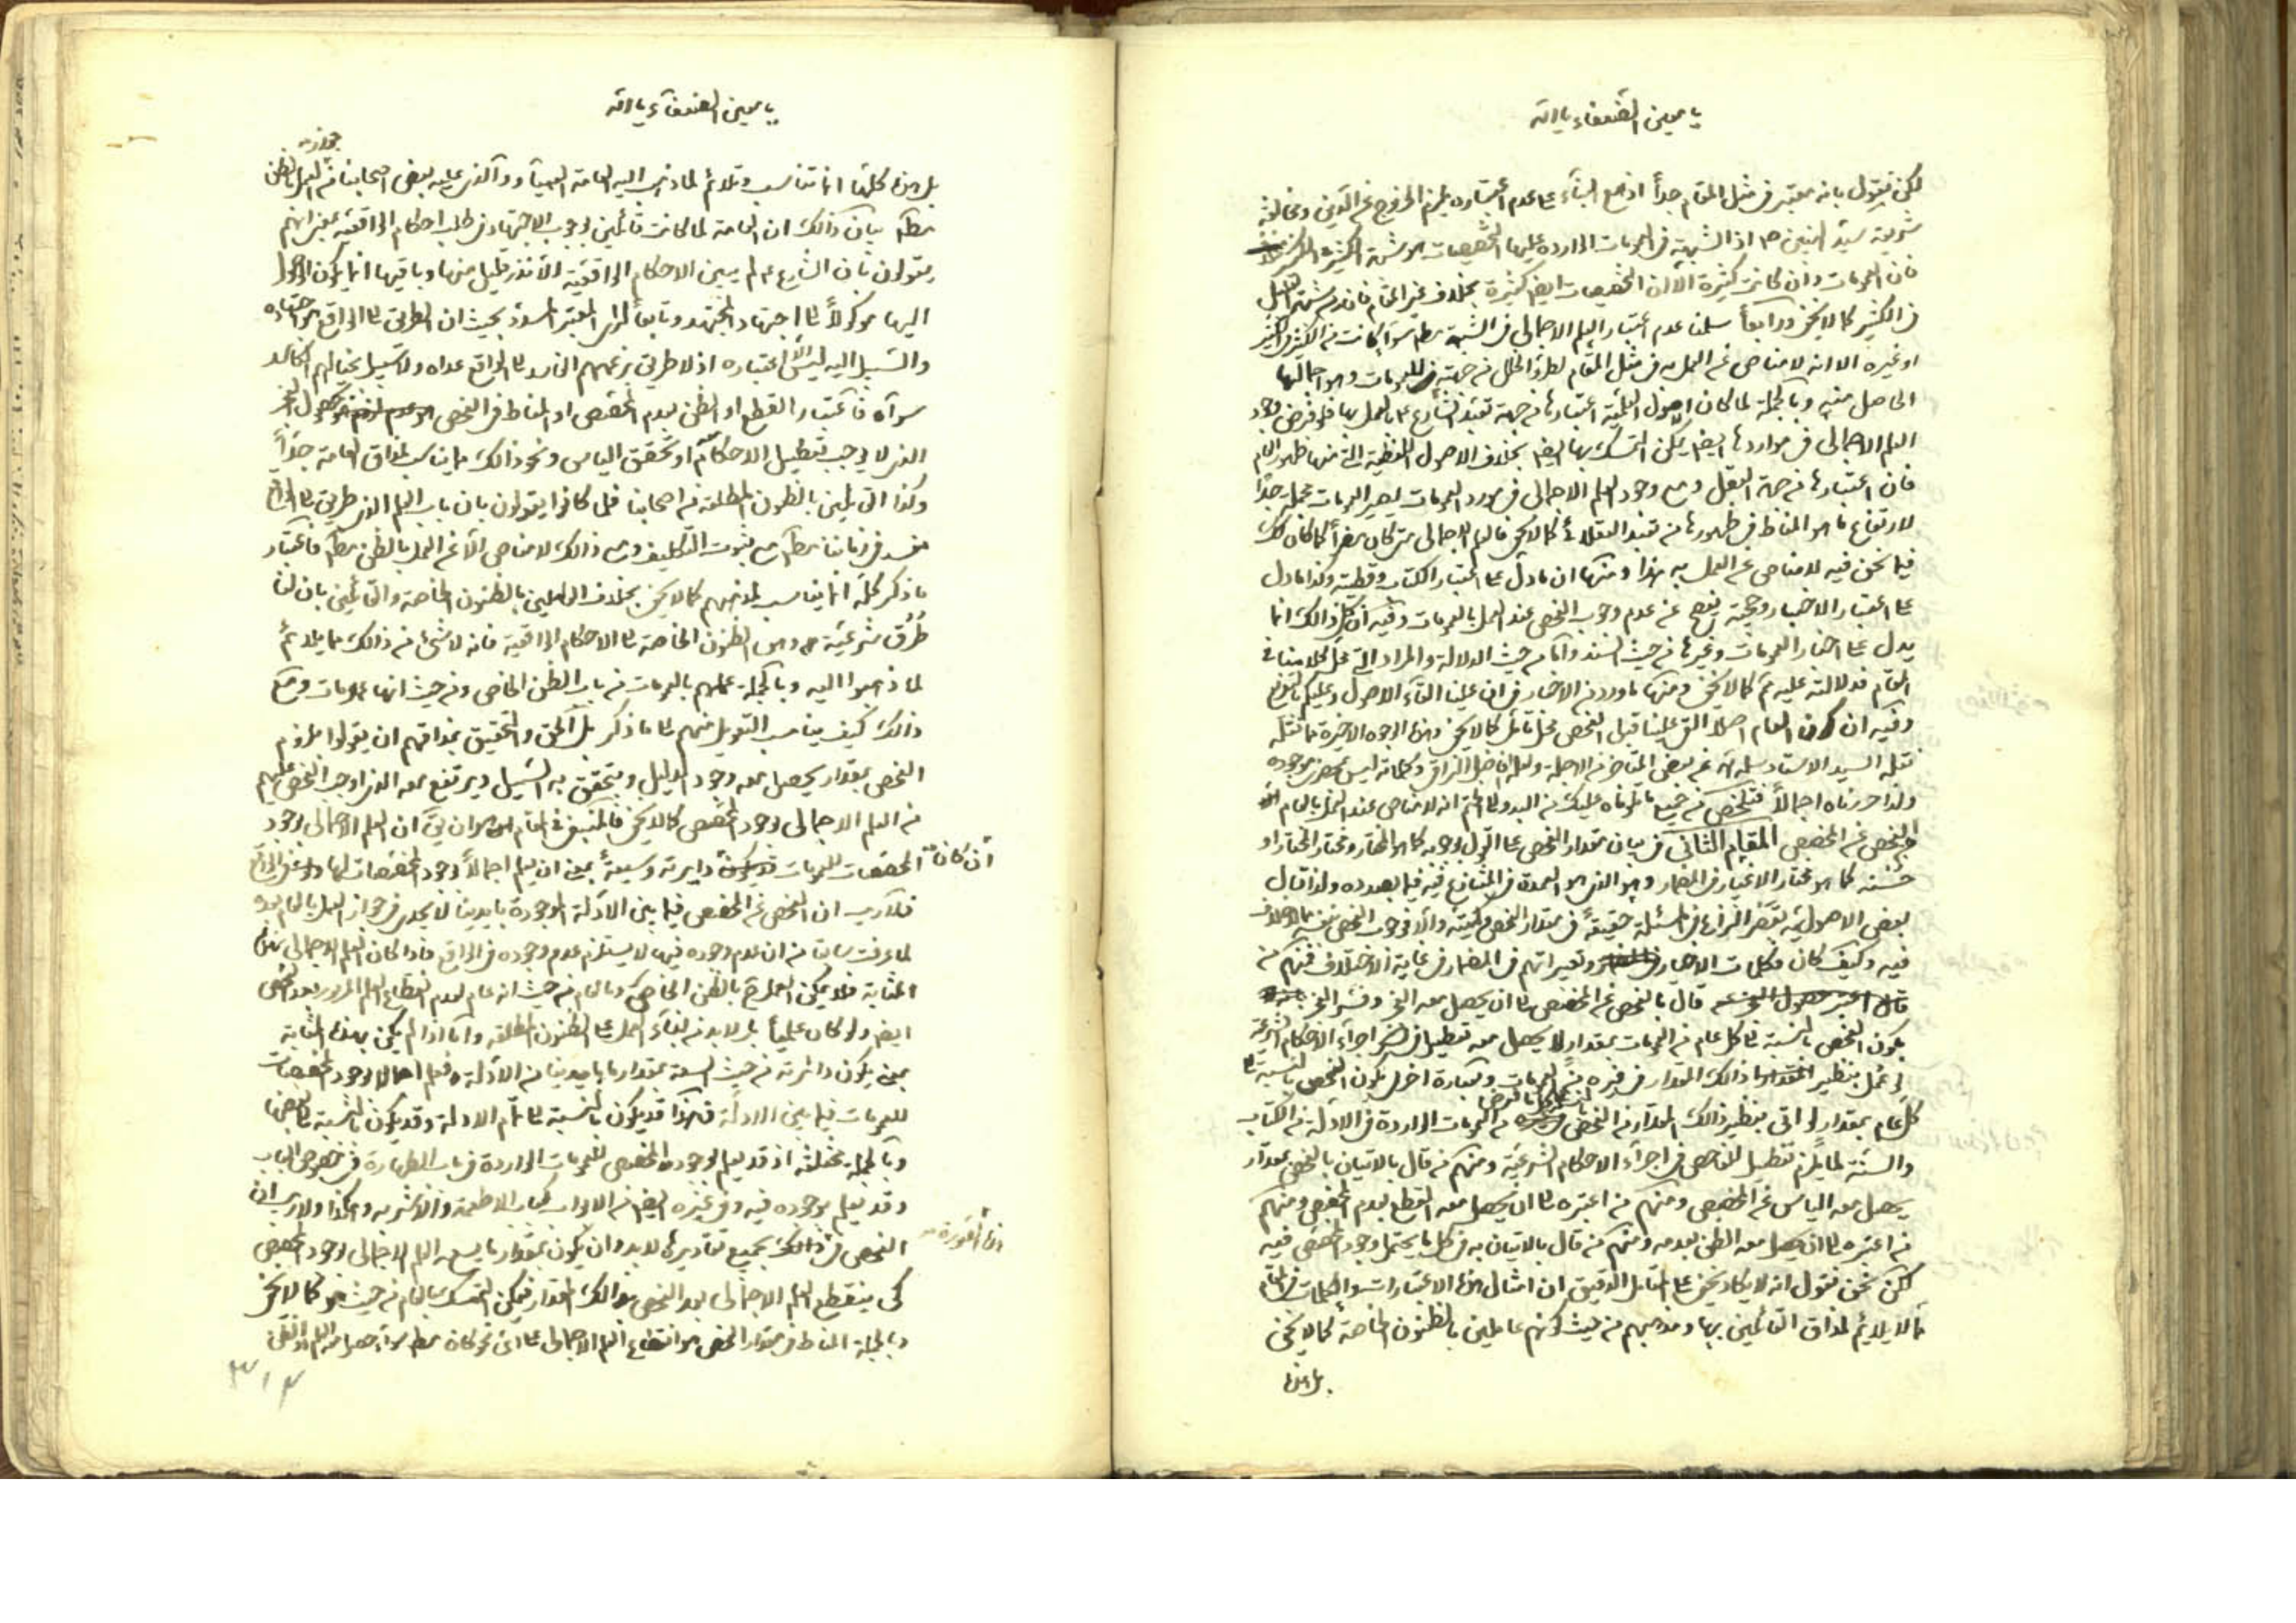 يا معين الضعفاء يا الله
لكن نقول بانه معتبر في مثل المقام جداً اذ مع البناء على عدم اعتباره يلزم الخروج عن الدين ومخالفة
شريعة سيد اذ الشبهة في العمومات الوارده عليها المخصصات هو شبهة الكثير في الكثير
فان العمومات وان كانت كثيرة الا ان المخصصات ايضا كثيرة بخلاف غير المقام فانه من شبهة القليل
في الكثير كما لا يخفى ورابعاً سلمنا عدم اعتبار العلم الاجمالي في الشبهة مطلقا سواء كانت من الكثير في الكثير
او غيره الا انه لا مناص عن العمل به في مثل المقام لطرو الخلل من جهته في العمومات وهو اجمالها
الحاصل منه وبالجملة لما كان الاصول العملية اعتبارها من جهة تعبد الشارع بالعمل بها فلو فرض وجود
العلم الاجمالي في مواردها ايضا يمكن التمسك بها ايضا بخلاف الاصول اللفظية التي منها ظهور العام
فان اعتبارها من جهة العقل ومع وجود العلم الاجمالي في مورد العمومات يصير العمومات مجملة جداً
لارتفاع ما هو المناط في ظهورها من العقلاء كما لا يخفى فالعلم الاجمالي متى كان مضراً كما كان كذلك
فيما نحن فيه لا مناص عن العمل به هذا ومنها ان ما دل على اعتبار الكتاب وقطعيته وكذا ما دل
على اعتبار الاخبار وحجية عن عدم وجوب الفحص عند العمل بالعمومات وفيه ان كل ذالك انما
يدل على اعتبار العمومات وغيرها من حيث السند واما من حيث الدلالة والمراد التي محل كلامنا في
المقام فدلالته عليه كما لا يخفى ومنها ما ورد من الاخبار في ان علينا القاء الاصول وعليكم بالتفريع
وفيه ان كون العام اصلا القى علينا قبل الفحص محل تأمل كما لا يخفى وهذه الوجوه الاخيرة مما
نقله السيد الاستاد سلمه الله عن بعض المتاخر من الاجلة ولعله الفاضل النراقي وكتابه ليس بموجوده
ولذا حررناه اجمالاً فتلخص من جميع ما تلوناه عليك من البدو الى الختم انه لا مناص عند العمل بالعام
الفحص عن المخصص المقام الثاني في بيان مقدار الفحص على القول بوجوبه كما هو المختار ومختار المختار او
حسنه كما هو مختار الاغيار في المضمار وهو الذي هو العمدة في المتنازع فيه فيما بصدده ولذا قال
بعض الاصوليه بقصر النزاع في المسئلة حقيقةً في مقدار الفحص وكميته والا فوجوب الفحص نفسه مما لا خلاف
فيه وكيف كان فكلمات الاخيار وتعبيراتهم في المضمار في غاية الاختلاف فمنهم من
قال بالفحص عن المخصص الى ان يحصل معه العجز وفسر العجز
بكون الفحص بالنسبة الى كل عام من العمومات بمقدار لا يحصل معه تعطيل في اجراء الاحكام الشرعية
لو عمل بنظير ذالك المقدار في غيره من العمومات وبعبارة اخرى يكون الفحص بالنسبة الى
كل عام بمقدار لو اتى بنظير ذالك المقدار من الفحص من العمومات الواردة في الادلة من الكتاب
والسنة لما يلزم تعطيل للفاحص في اجراء الاحكام الشرعية ومنهم من قال بالاتيان بالفحص بمقدار
يحصل معه الياس عن المخصص ومنهم من اعتبره الى ان يحصل معه القطع بعدم المخصص ومنهم
من اعتبره الى ان يحصل معه الظن بعدمه ومنهم من قال بالاتيان به في كل ما يحتمل وجود المخصص فيه
لكن نحن نقول انه لا يكاد يخفى على المتامل الدقيق ان امثال هذه الاعتبارات والكلمات في المقام
مما لا يلائم لمذاق القائلين بها ومذهبهم من حيث كونهم عاملين بالظنون الخاصة كما لا يخفى
بل هذه
يا معين الضعفاء يا الله
جواز
بل هذه كلها انما تناسب وتلائم لما ذهب اليه العامة العمياء والذي عليه بعض اصحابنا من العمل بالظن
مطلقا بيان ذالك ان العامة لما كانت قائلين بوجوب الاجتهاد في طلب احكام الواقعية بمعنى انهم
يقولون بان الشارع لم يبين الاحكام الواقعية الا نذر قليل منها وباقيها انما يكون الوصول
اليها موكولاً الى اجتهاد المجتهد وتابعاً لرايه بحيث ان الطريق الى الواقع هو اجتهاده
والسبيل اليه ليس الا اعتباره اذ لا طريق بزعمهم الفاسد الى الواقع عداه ولا سبيل بخيالهم الكاسد
سواه فاعتبار القطع او الظن بعدم المخصص او المناط في الفحص حصول العجز
الذي لا يوجب تعطيل الاحكام او تحقق الياس ونحو ذالك مما يناسب لمذاق العامة جداً
وكذا القائلين بالظنون المطلقة من اصحابنا فلما كانوا يقولون بان باب العلم الذي طريق الى الواقع
منسد في زماننا مطلقا مع ثبوت التكليف ومع ذالك لا مناص الا عن العمل بالظن مطلقا فاعتبار
ما ذكر كله انما يناسب لمذهبهم كما لا يخفى بخلاف العاملين بالظنون الخاصة والقائلين بان لنا
طرق شرعية وهي الظنون الخاصة الى الاحكام الواقعية فانه لا شيء من ذالك مما يلائم
لما ذهبوا اليه وبالجملة عملهم بالعمومات من باب الظن الخاص ومن حيث انها عمومات ومع
ذالك كيف يناسب التعويل منهم الى ما ذكر بل الحق والتحقيق بمذاقهم ان يقولوا بلزوم
الفحص بمقدار يحصل معه وجود الدليل ويتحقق به السبيل ويرتفع معه الذي اوجب الفحص عليهم
من العلم الاجمالي بوجود المخصص كما لا يخفى فالمتبع في المقام هو ان يق ان العلم الاجمالي بوجود
المخصصات للعمومات ان كان دايرته وسيعةً بمعنى ان يعلم اجمالاً وجود المخصصات لها ولو في الواقع
فلا ريب ان الفحص عن المخصص فيما بين الادلة الموجودة بايدينا لا يجدي في جواز العمل بالعام بعده
لما عرفت سابقا من ان عدم وجوده فيها لا يستلزم عدم وجوده في الواقع فاذا كان العلم الاجمالي بهذه
المثابة فلا يمكن العمل بالظن الخاص وبالعام من حيث انه عام لعدم انقطاع العلم المزبور بعد الفحص
ايضا ولو كان علمياً بل لابد من بناء العمل على الظنون المطلقة واما اذا لم يكن بهذه المثابة
بمعنى يكون دائرته من حيث السعة بمقدار ما بايدينا من الادلة فنعلم اجمالا وجود المخصصات
للعمومات فيما بين الادلة فهكذا قد يكون بالنسبة الى تمام الادلة وقد يكون بالنسبة الى بعضها
وبالجملة مختلفة اذ قد يعلم بوجود المخصص للعمومات الواردة في باب الطهارة في خصوص الباب
وقد يعلم بوجوده فيه وفي غيره ايضا من الابواب كباب الاطعمة والاشربه وهكذا ولا ريب ان
الفحص في هذه الصورة بجميع تقاديرها لابد وان يكون بمقدار ما يسعه العلم الاجمالي بوجود المخصص
كي ينقطع العلم الاجمالي بعد الفحص بذالك المقدار فيمكن التمسك بالعام من حيث هو كما لا يخفى
وبالجملة المناط في مقدار الفحص هو انقطاع العلم الاجمالي على اي نحو كان مطلقا سواء حصل العلم او الظن
٣١٤